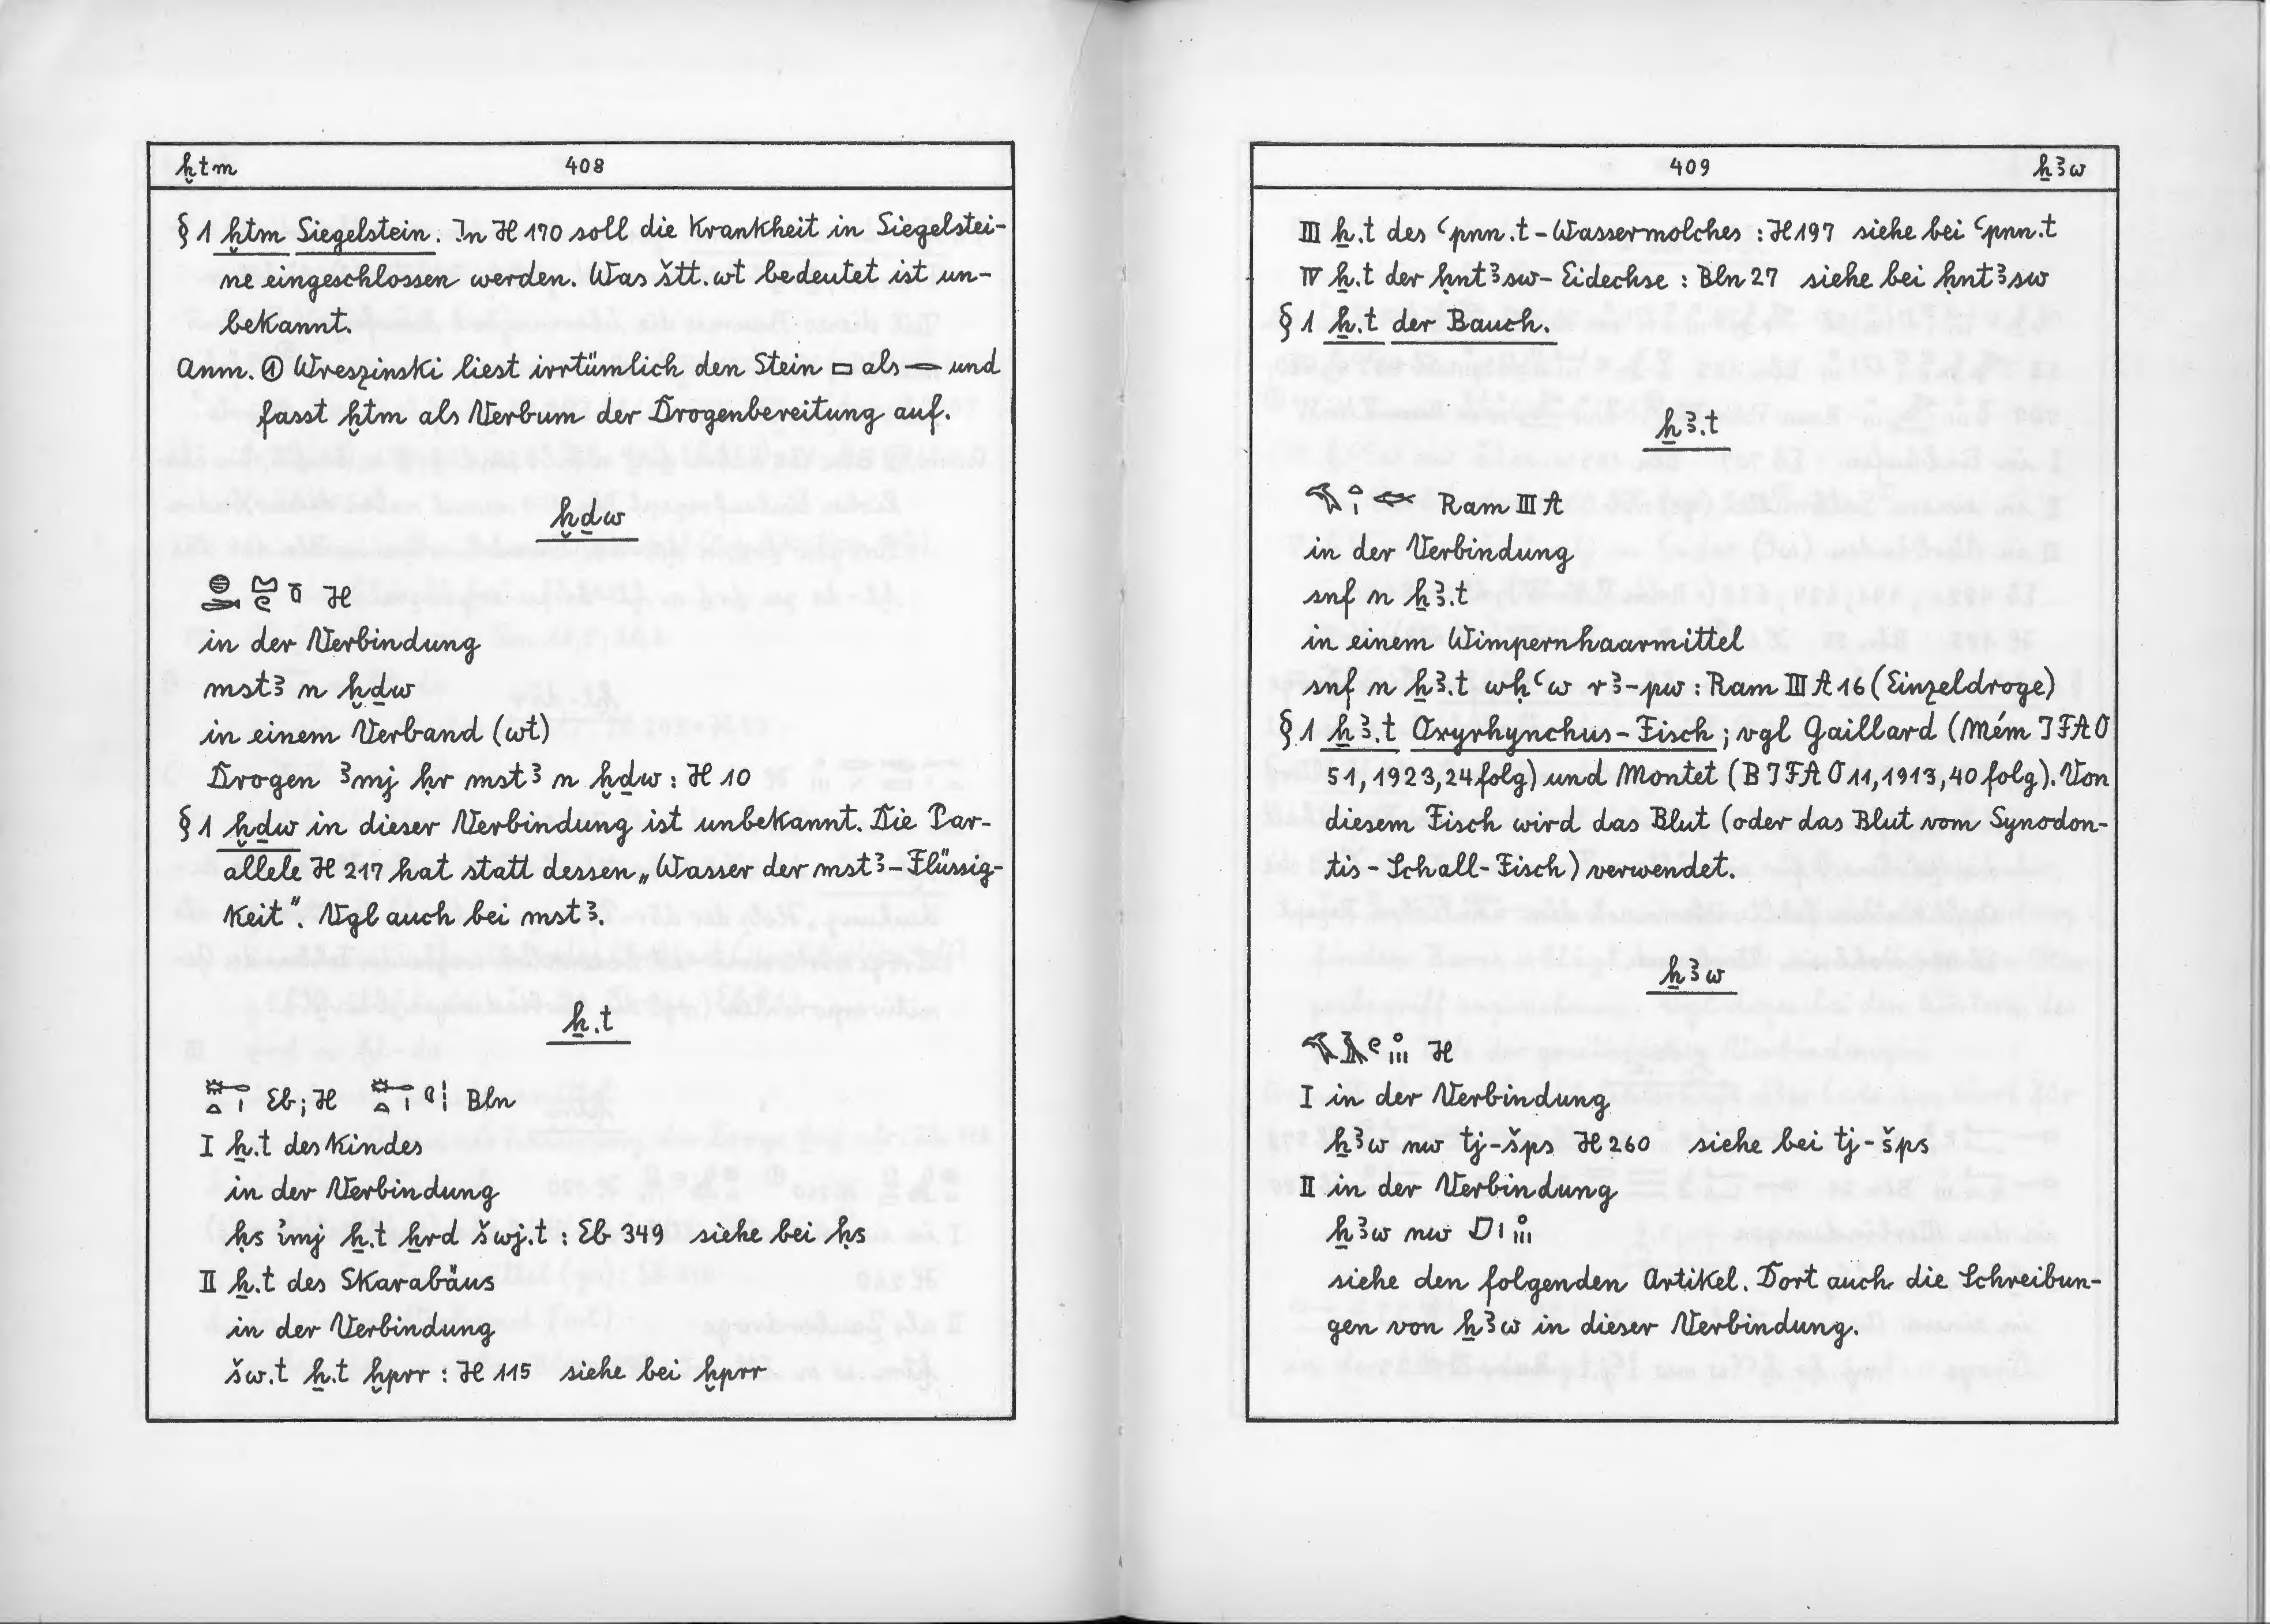 ḫtm 408
§ 1 ḫtm Siegelstein. In H 170 soll die Krankheit in Siegelstei-
ne eingeschlossen werden. Was štt.wt bedeutet ist un-
bekannt.
Anm. ① Wreszinski liest irrtümlich den Stein als und
fasst ḫtm als Verbum der Drogenbereitung auf.
ḫḏw
H
in der Verbindung
mstꜣ n ḫḏw
in einem Verband (wt)
Drogen ꜣmj ḥr mstꜣ n ḫḏw : H 10
§ 1 ḫḏw in dieser Verbindung ist unbekannt. Die Par-
allele H 217 hat statt dessen „Wasser der mstꜣ-Flüssig-
keit". Vgl auch bei mstꜣ.
ẖ.t
Eb; H Bln
I ẖ.t des Kindes
in der Verbindung
ḥs ỉmj ẖ.t ẖrd šwj.t : Eb 349 siehe bei ḥs
II ẖ.t des Skarabäus
in der Verbindung
šw.t ẖ.t ḫprr : H 115 siehe bei ḫprr
409 ẖꜣw
III ẖ.t des ꜥpnn.t-Wassermolches : H 197 siehe bei ꜥpnn.t
IV ẖ.t der ḥntꜣsw-Eidechse : Bln 27 siehe bei ḥntꜣsw
§ 1 ẖ.t der Bauch.
ẖꜣ.t
Ram III A
in der Verbindung
snf n ẖꜣ.t
in einem Wimpernhaarmittel
snf n ẖꜣ.t wḥꜥw rꜣ-pw : Ram III A 16 (Einzeldroge)
§ 1 ẖꜣ.t Oxyrhynchus-Fisch ; vgl Gaillard (Mém IFAO
51, 1923, 24 folg) und Montet (BIFAO 11, 1913, 40 folg). Von
diesem Fisch wird das Blut (oder das Blut vom Synodon-
tis-Schall-Fisch) verwendet.
ẖꜣw
H
I in der Verbindung
ẖꜣw nw tj-šps H 260 siehe bei tj-šps
II in der Verbindung
ẖꜣw nw
siehe den folgenden Artikel. Dort auch die Schreibun-
gen von ẖꜣw in dieser Verbindung.